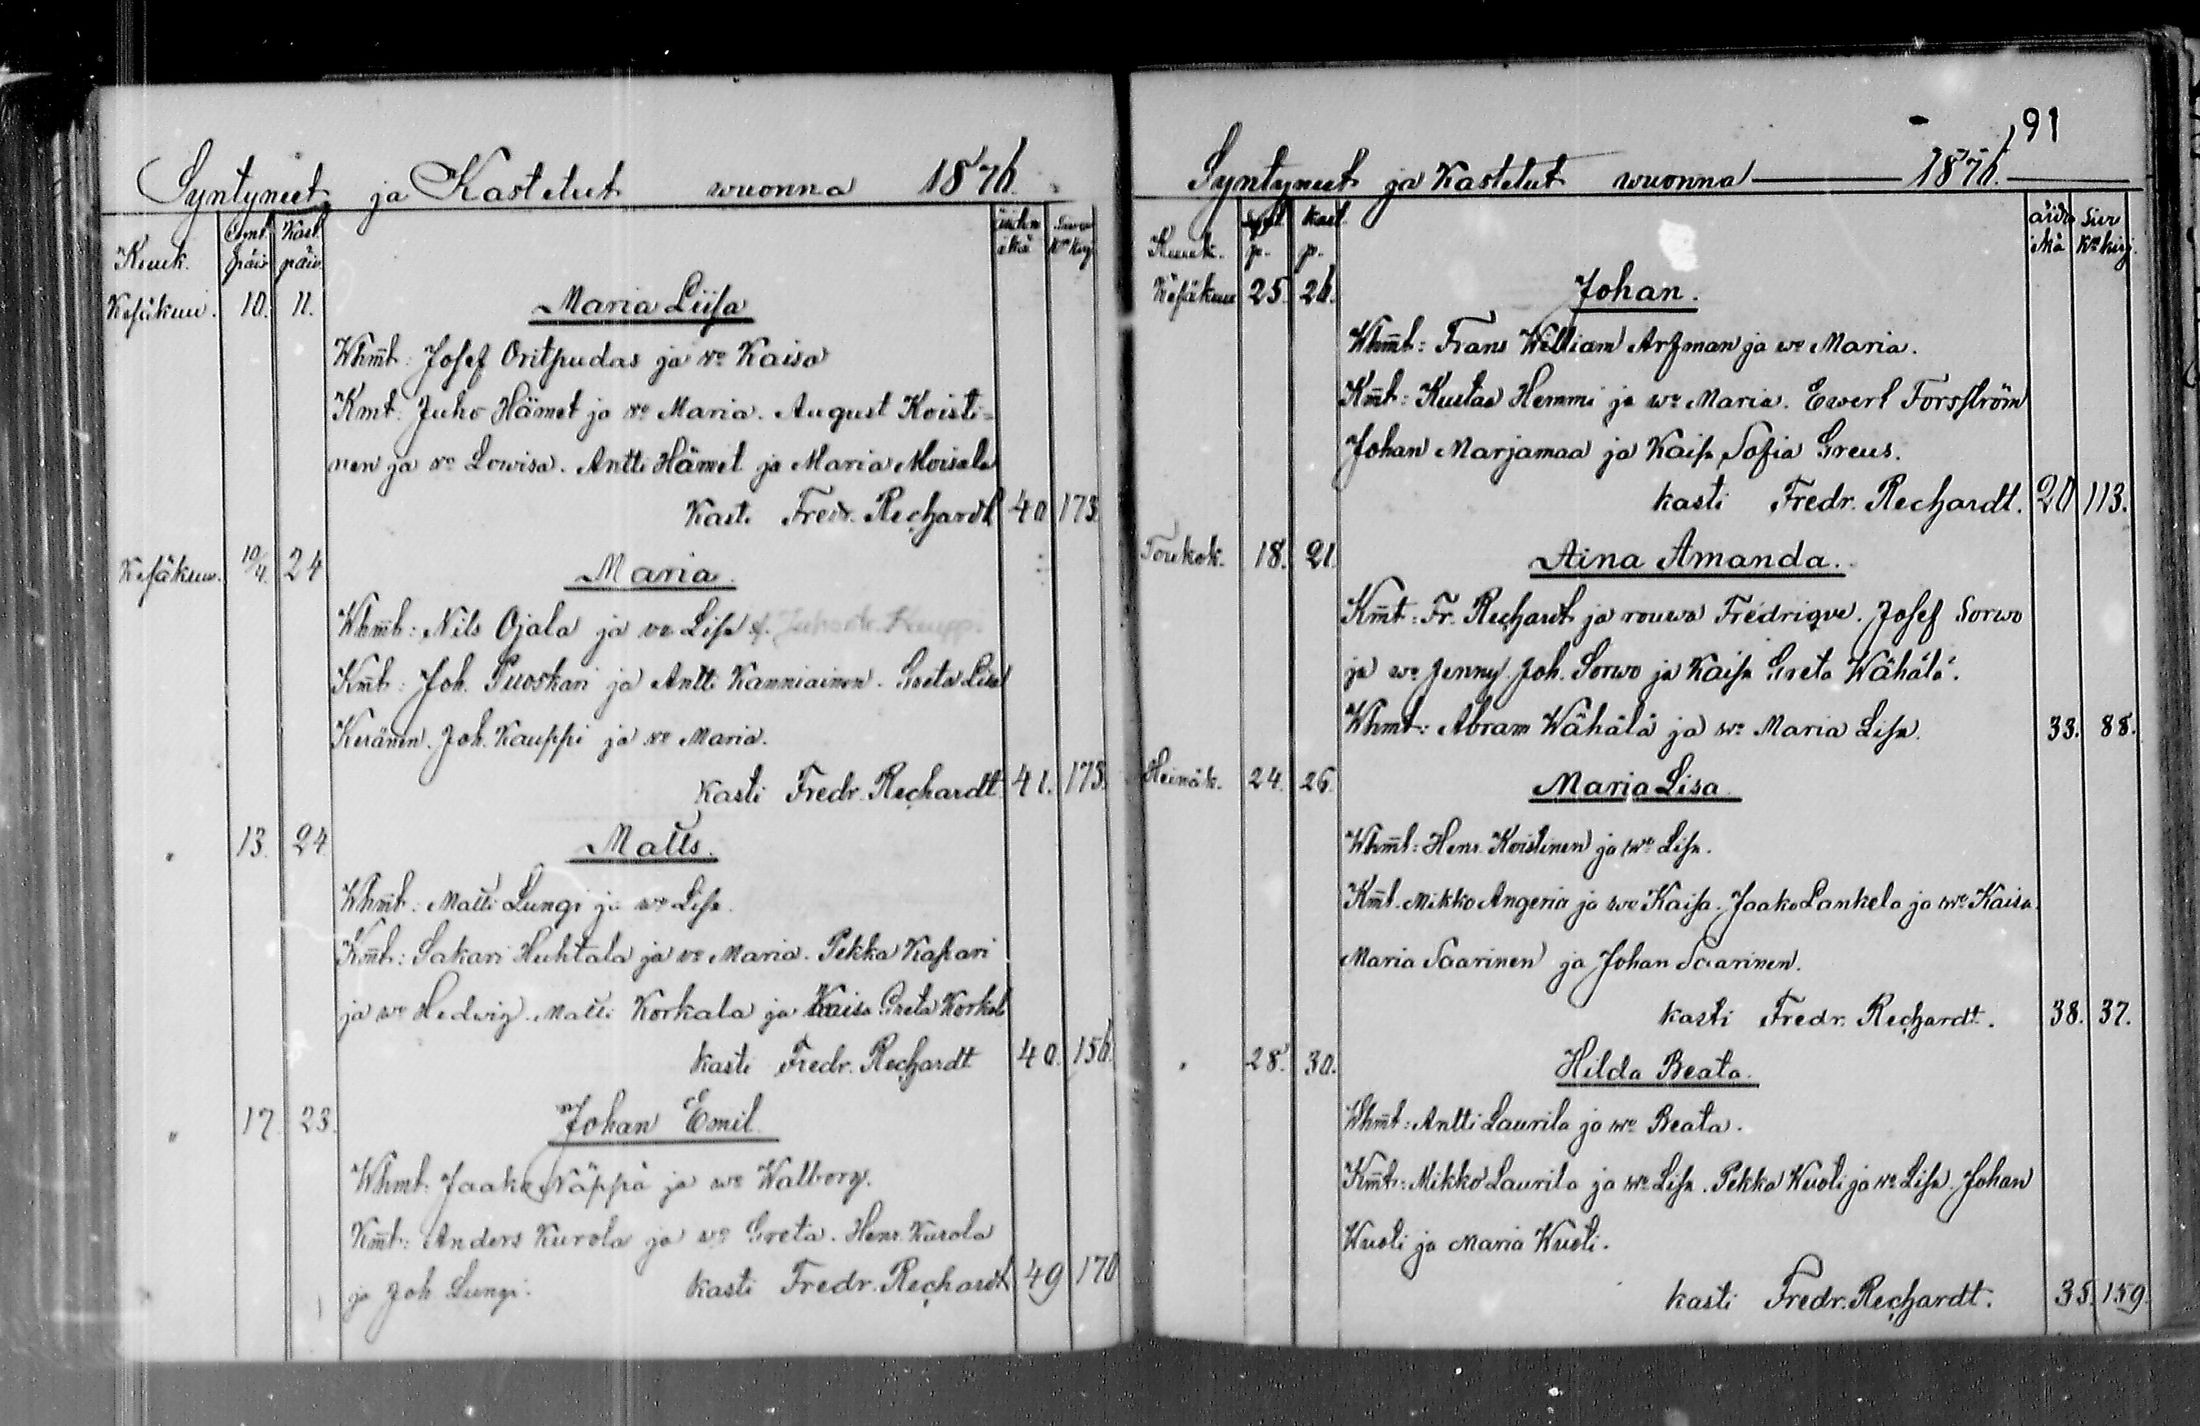 Syntyneet ja Kastetut wuonna 1876.
Kuuk. Synt. päiv Kast. päiv. äitin ikä Suur Km kirj
Kesäkuu. 10. 11. Maria Liisa
Whm̄t: Josef Oritpudas ja wo Kaisa
Kmt. Juho Hämet ja wo Maria. August Koisti-
nen ja wo Lowisa. Antti Hämet ja Maria Moisala
Kasti Fredr. Rechardt 40 173.
Kesäkuu. 10/4. 24 Maria.
Whm̄t: Nils Ojala ja wo Lisa
Km̄t: Joh. Puoskari ja Antti Kanniainen. Greta Lisa
Keränen. Joh. Kauppi ja wo Maria.
Kasti Fredr. Rechardt 41. 173.
" 13. 24 Matts.
Whm̄t: Matti Lungi ja wo Lisa.
Km̄t: Sakari Huhtala ja wo Maria. Pekka Kaskari
ja wo Hedwig. Matti Korkala ja Kaisa Greta Korkal
Kasti Fredr. Rechardt 40. 156.
" 17. 23. Johan Emil.
Whmt: Jaako Näppä ja wo Walborg.
Km̄t: Anders Kurola ja wo Greta. Henr. Kurola
ja Joh Lungi. Kasti Fredr. Rechardt 49 170
91
Syntyneet ja Kastetut wuonna 1876.
Kuuk. Synt. p. Kast. p. äidin ikä Suur Km kirj.
Kesäkuu 25. 26. Johan.
Whm̄t: Frans William Arfman ja wo Maria.
Km̄t: Kustaa Hemmi ja wo Maria. Ewert Forsström
Johan Marjamaa ja Kaisa Sofia Greus.
kasti Fredr. Rechardt. 20 113.
Toukok. 18. 21. Aina Amanda.
Km̄t: Fr. Rechardt ja rouwa Fredriqve. Josef Sorwo
ja wo Jenny. Joh. Sorwo ja Kaisa Greta Wähälä.
Whmt: Abram Wähälä ja wo Maria Lisa. 33. 88.
Heinäk. 24. 26. Maria Lisa
Whm̄t: Henr. Koistinen ja wo Lisa.
Km̄t. Mikko Angeria ja wo Kaisa. Jaako Lankela ja wo Kaisa.
Maria Saarinen ja Johan Saarinen.
kasti Fredr. Rechardt. 38. 37.
" 28. 30. Hilda Beata.
Whm̄t: Antti Laurila ja wo Beata.
Km̄t: Mikko Laurila ja wo Lisa. Pekka Kusti ja wo Lisa. Johan
Kusti ja Maria Kusti.
kasti Fredr. Rechardt. 35. 159.